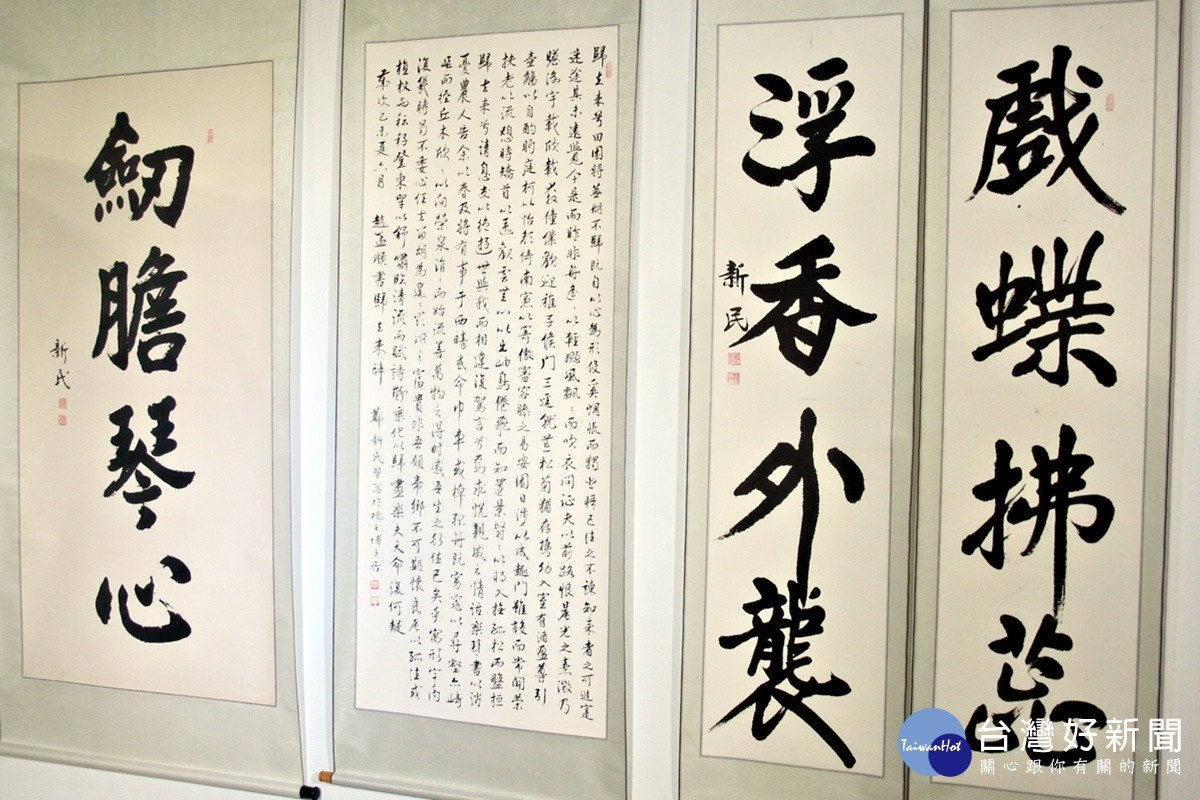 戲蝶拂
浮香外襲
新民
歸去來兮田園將蕪胡不歸既自以心為形役奚惆悵而獨悲悟已往之不諫知來者之可追寔
迷途其未遠覺今是而昨非舟遙〻以輕颺風飄〻而吹衣問征夫以前路恨晨光之熹微乃
瞻衡宇載欣載奔僮僕歡迎稚子候門三逕就荒松菊猶存攜幼入室有酒盈尊引
壺觴以自酌眄庭柯以怡顏倚南窻以寄傲審容膝之易安園日涉以成趣門雖設而常關策
扶老以流憩時矯首以遐觀雲無心以出岫鳥倦飛而知還景翳〻以將入撫孤松而盤桓
歸去來兮請息交以絕遊世與我而相違復駕言兮焉求悅親戚之情話樂琴書以消
憂農人告余以春及將有事于西疇或命巾車或棹孤舟既窈窕以尋壑亦崎
嶇而經丘木欣〻以向榮泉涓〻而始流善萬物之得時感吾生之行休已矣乎寓形宇內
復幾時曷不委心任去留胡為遑〻兮何之富貴非吾願帝鄉不可期懷良辰以孤往或
植杖而耘耔登東皋以舒嘯臨清流而賦詩聊乘化以歸盡樂夫天命復何疑
歲次乙未夏六月 趙孟頫書歸去來辭 鄭新民習寫於
劒膽琴心
新民
TaiwanHot
台灣好新聞
關心跟你有關的新聞